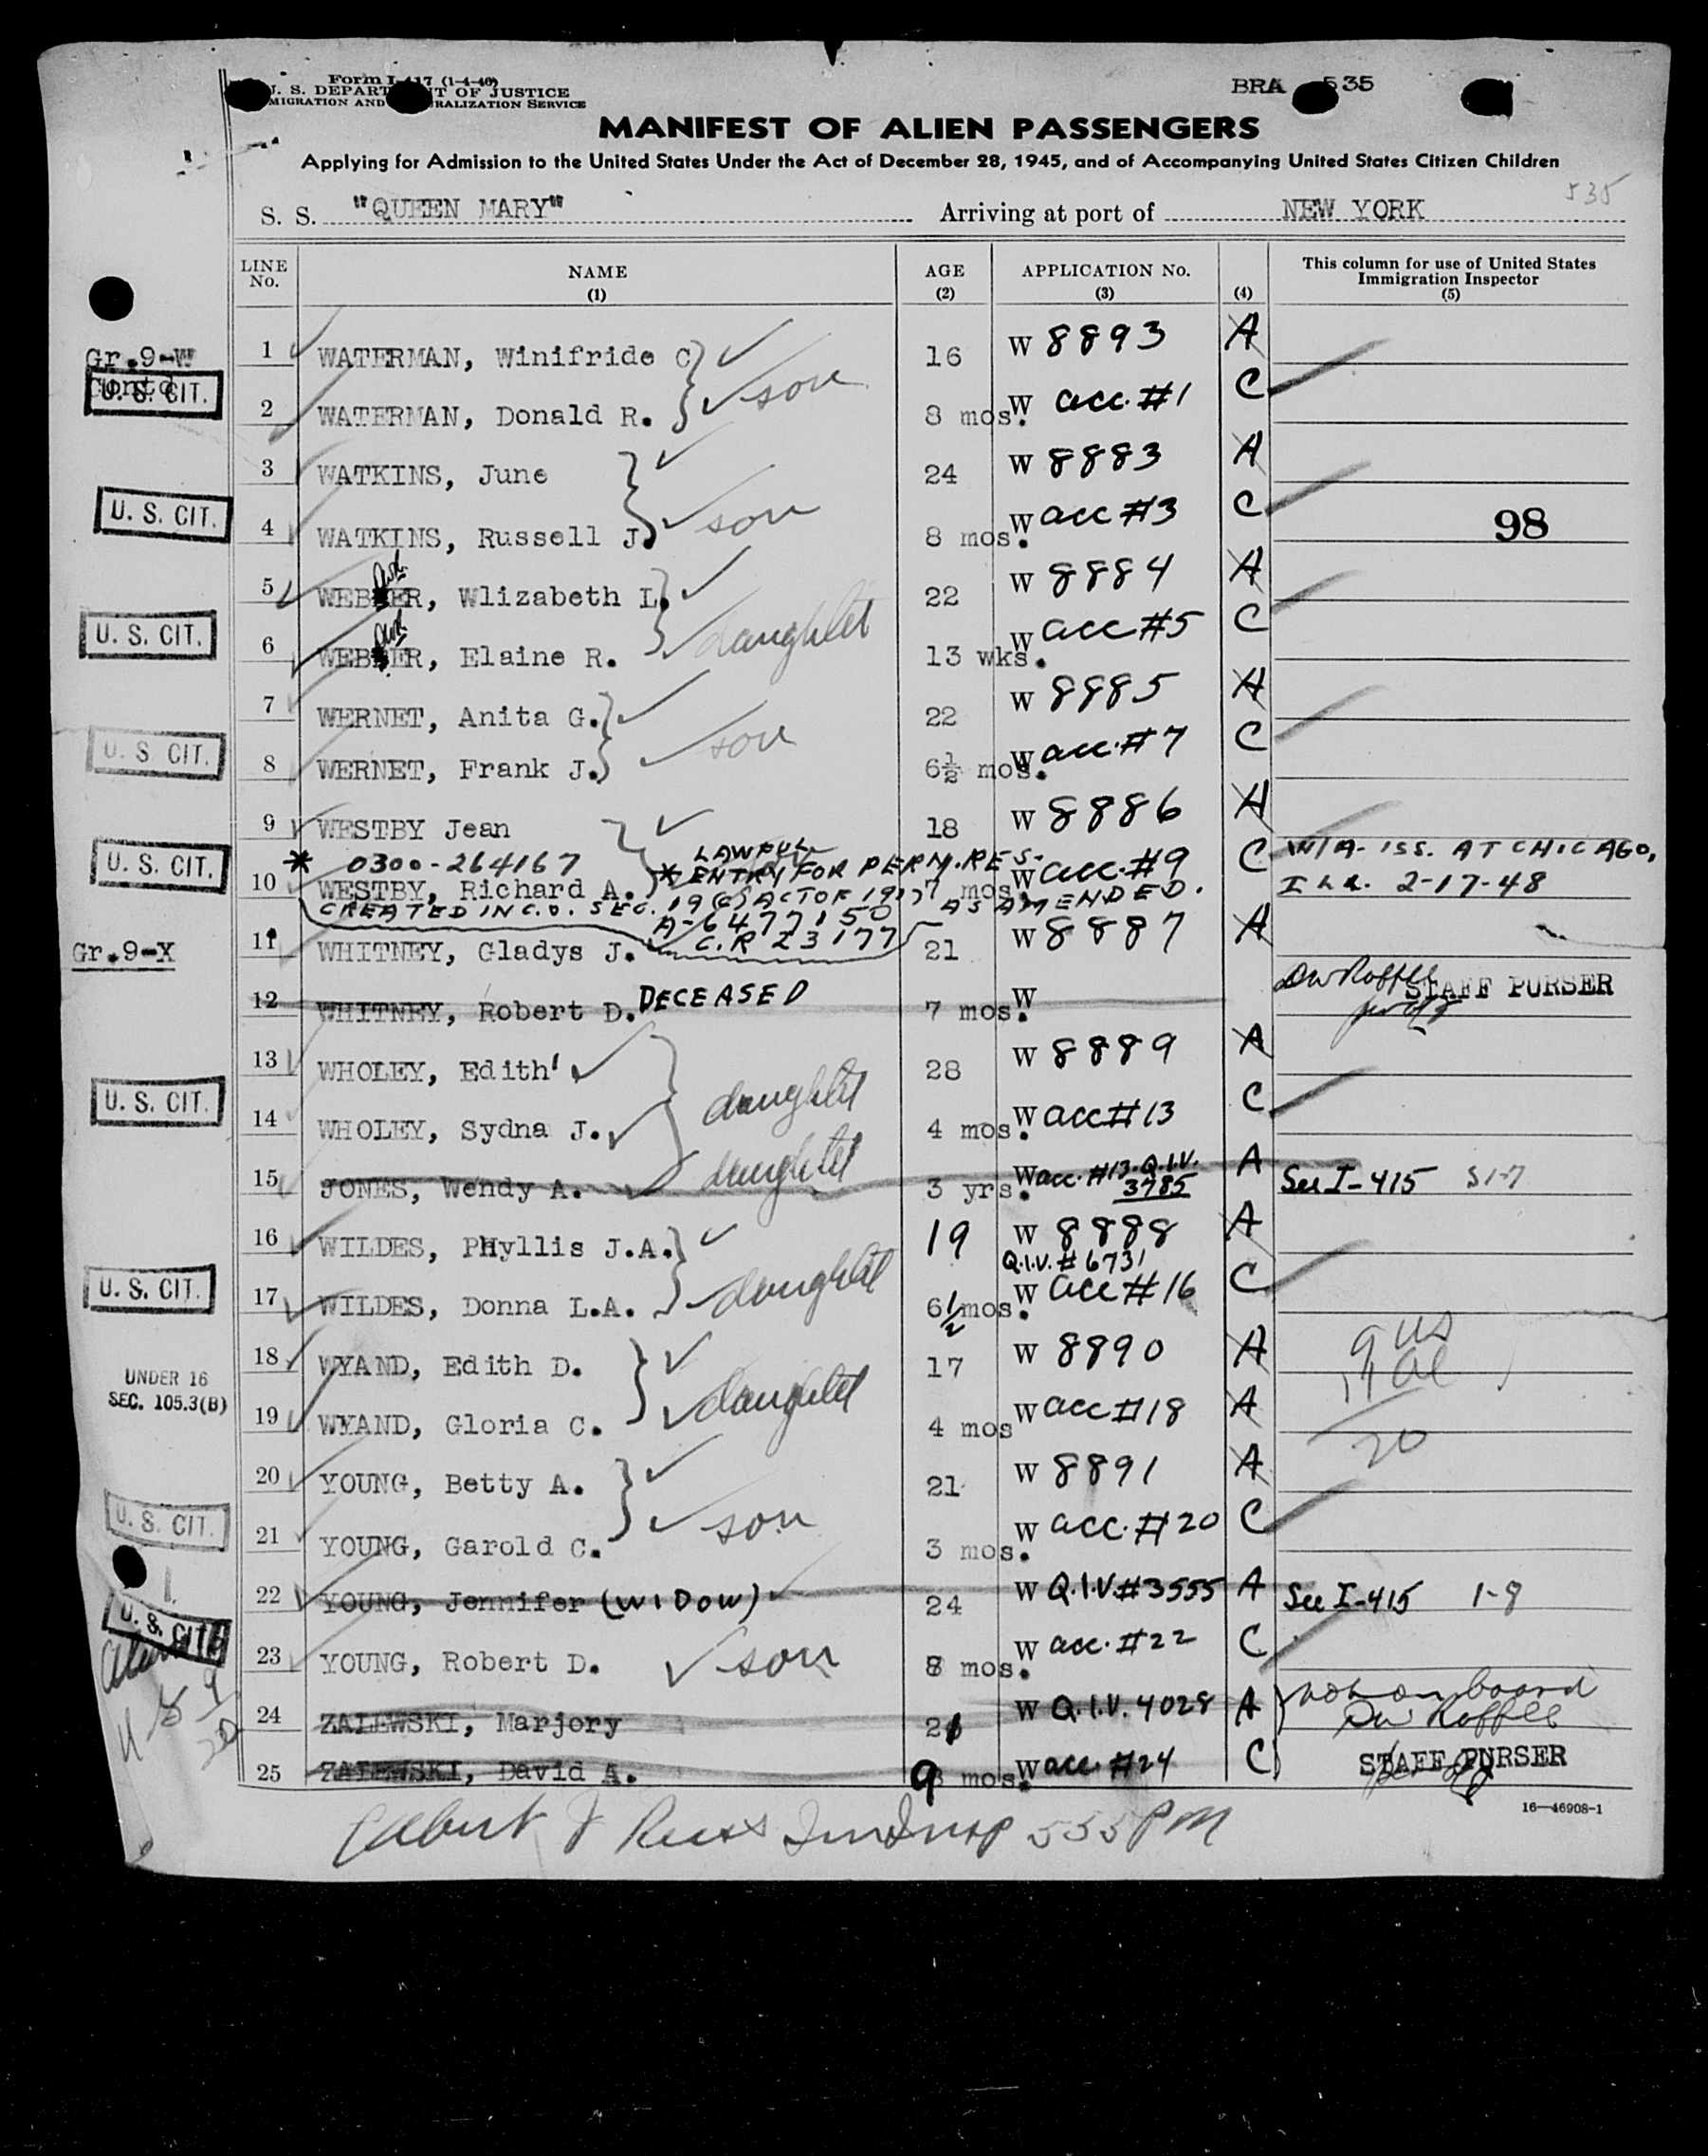 Form I-417 (1-4-46)
U. S. DEPARTMENT OF JUSTICE
IMMIGRATION AND NATURALIZATION SERVICE
BRA 535
MANIFEST OF ALIEN PASSENGERS
Applying for Admission to the United States Under the Act of December 28, 1945, and of Accompanying United States Citizen Children
535
S. S. "QUEEN MARY" Arriving at port of NEW YORK
LINE No. NAME (1) AGE (2) APPLICATION No. (3) (4) This column for use of United States Immigration Inspector (5)
Gr.9-W Contd
1 WATERMAN, Winifride C 16 W 8893 A
U. S. CIT. 2 WATERMAN, Donald R. son 8 mos. W acc. #1 C
3 WATKINS, June 24 W 8883 A
U. S. CIT. 4 WATKINS, Russell J. son 8 mos. W acc #3 C 98
5 WEBER, Wlizabeth L. 22 W 8884 A
U. S. CIT. 6 WEBER, Elaine R. daughter 13 wks. W acc #5 C
7 WERNET, Anita G. 22 W 8885 A
U. S. CIT. 8 WERNET, Frank J. son 6½ mos. W acc. #7 C
9 WESTBY Jean 18 W 8886 A
* 0300-264167 * LAWFUL ENTRY FOR PERM. RES.
U. S. CIT. 10 WESTBY, Richard A. 7 mos. W acc. #9 C W/A-ISS. AT CHICAGO, ILL. 2-17-48
CREATED IN C.O. SEC. 19(c) ACT OF 1917 AS AMENDED.
A-6477150
C.R 23177
Gr.9-X 11 WHITNEY, Gladys J. 21 W 8887 A
12 WHITNEY, Robert D. DECEASED 7 mos. W STAFF PURSER
13 WHOLEY, Edith 28 W 8889 A
U. S. CIT. 14 WHOLEY, Sydna J. daughter 4 mos. W acc #13 C
15 JONES, Wendy A. daughter 3 yrs. W acc. #13. Q.I.V. 3785 A See I-415 S1-7
16 WILDES, PHyllis J.A. 19 W 8888 A
Q.I.V. # 6731
U. S. CIT. 17 WILDES, Donna L.A. daughter 6½ mos. W acc #16 C
18 WYAND, Edith D. 17 W 8890 A 9 us
UNDER 16 SEC. 105.3(B) 19 WYAND, Gloria C. daughter 4 mos W acc #18 A 11 al
20
20 YOUNG, Betty A. 21 W 8891 A
U. S. CIT. 21 YOUNG, Garold C. son 3 mos. W acc. #20 C
22 YOUNG, Jennifer (WIDOW) 24 W Q.I.V. #3555 A See I-415 1-8
U. S. CIT. 23 YOUNG, Robert D. son 8 mos. W acc. #22 C
24 ZALEWSKI, Marjory 21 W Q.I.V. 4028 A not on board
25 ZALEWSKI, David A. 9 mos. W acc. #24 C STAFF PURSER
16—46908-1
555 PM